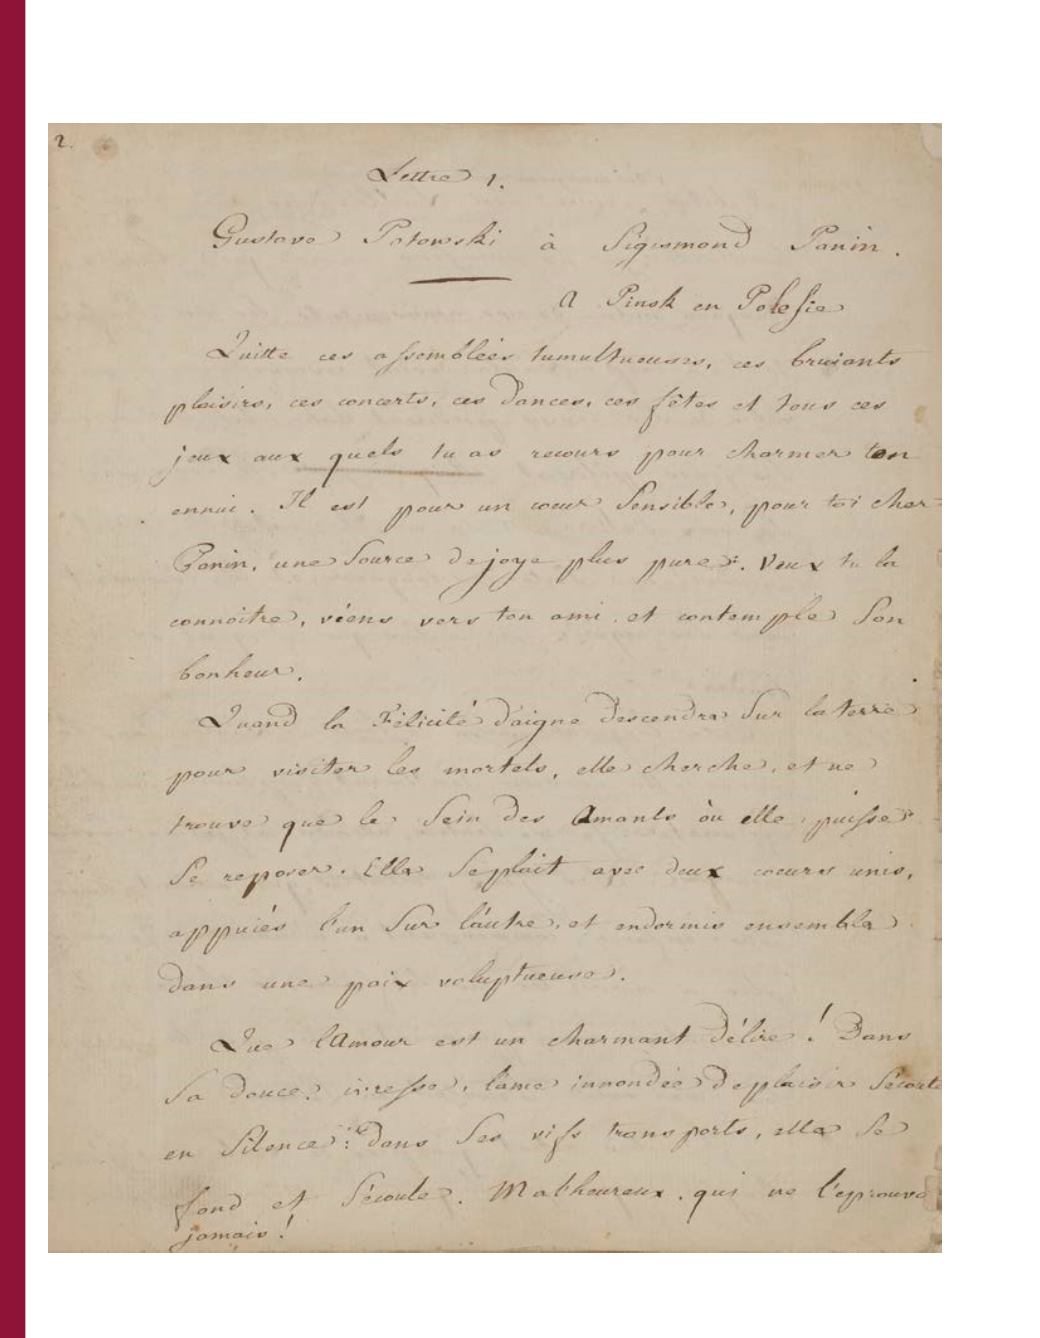 2.
Lettre 1.
Gustave Potowski à Sigismond Panin.
A Pinsk en Polesie
Quitte ces assemblées tumultueuses, ces bruiants
plaisirs, ces concerts, ces dances, ces fêtes et tous ces
jeux aux quels tu as recours pour charmer ton
ennui. Il est pour un cœur sensible, pour toi cher
Panin, une source de joye plus pure. Veux tu la
connoitre, viens vers ton ami, et contemple son
bonheur.
Quand la Félicité daigne descendre sur la terre
pour visiter les mortels, elle cherche, et ne
trouve que le sein des Amants où elle puisse
se reposer. Elle se plait avec deux cœurs unis,
appuiés l'un sur l'autre, et endormis ensemble
dans une paix voluptueuse.
Que l'Amour est un charmant délire! Dans
sa douce ivresse, l'ame innondée de plaisir s'écoute
en silence: dans ses vifs transports, elle se
fond et s'écoule. Malheureux, qui ne l'eprouva
jamais!